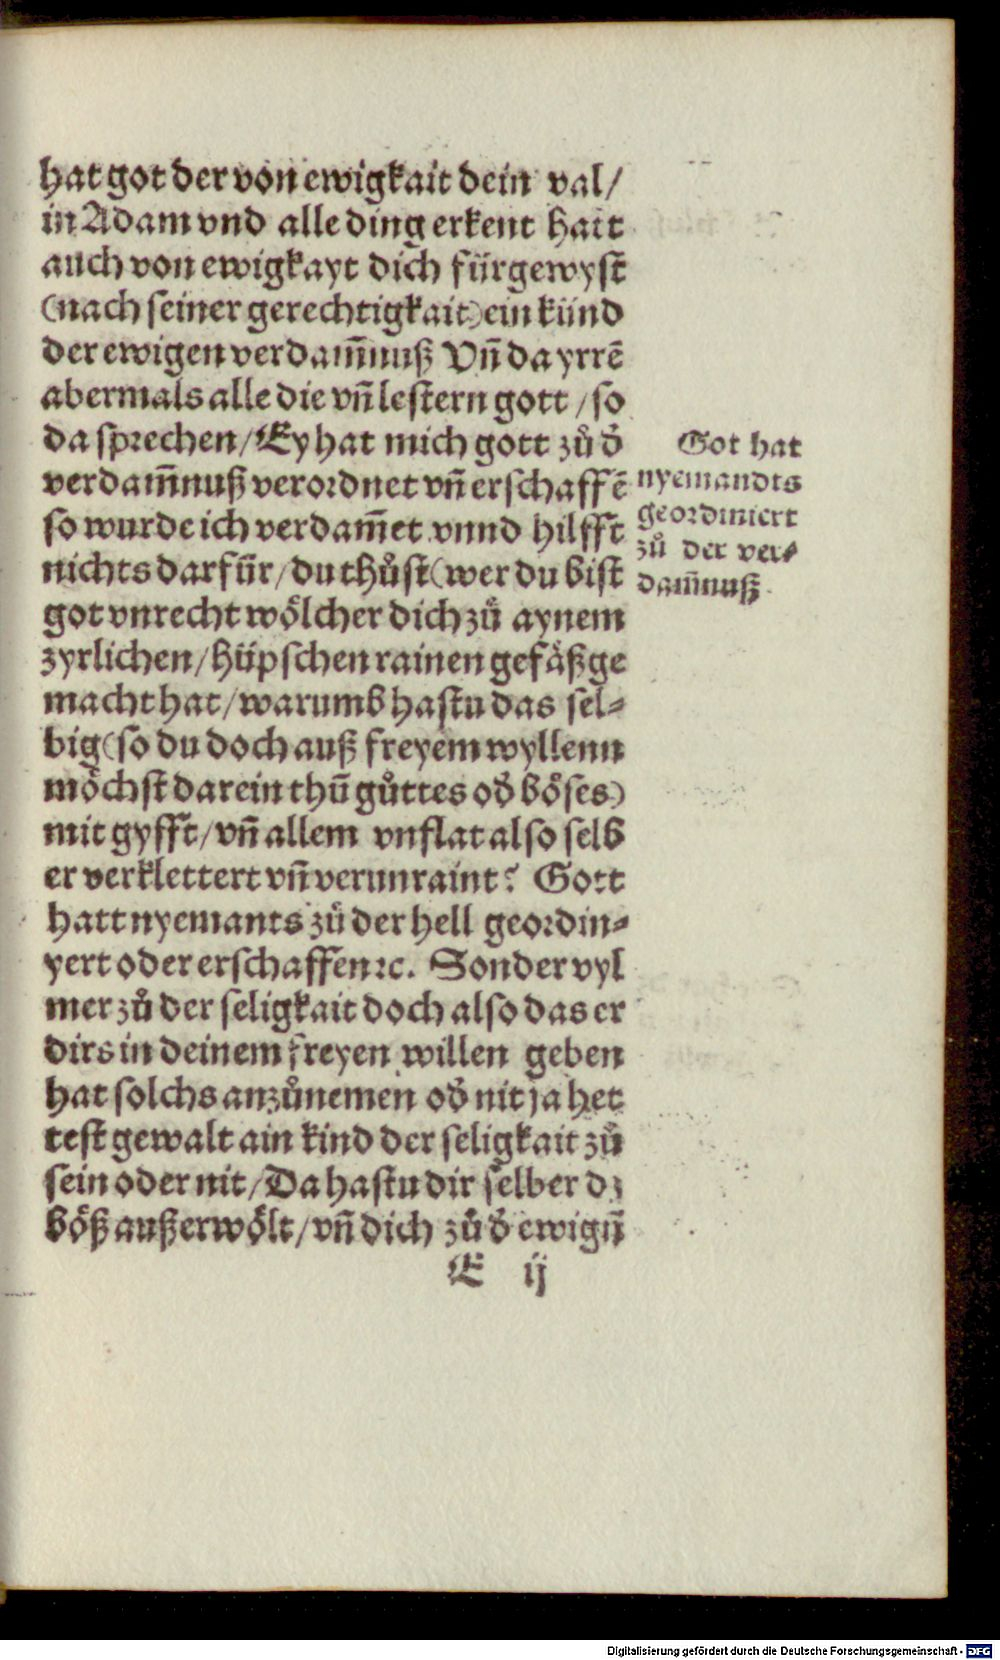 hat got der von ewigkait dein val/
in Adam vnd alle ding erkent hatt
auch von ewigkayt dich fürgewyst
(nach seiner gerechtigkait) ein künd
der ewigen verdam̄nuß Vn̄ da yrrē
abermals alle die vn̄ lestern gott / so
da sprechen/ Ey hat mich gott zů d̓
verdam̄nuß verordnet vn̄ erschaffē
so wurde ich verdam̄et vnnd hilfft
nichts darfür/ du thůst (wer du bist
got vnrecht wölcher dich zů aynem
zyrlichen/ hüpschen rainen gefäß ge
macht hat/ warumb hastu das sel⸗
big (so du doch auß freyem wyllenn
möchst darein thů̄ gůttes od̓ böses)
mit gyfft/ vn̄ allem vnflat also selb
er verklettert vn̄ verunraint? Gott
hatt nyemants zů der hell geordin⸗
yert oder erschaffen ꝛc. Sonder vyl
mer zů der seligkait doch also das er
dirs in deinem freyen willen geben
hat solchs anzůnemen od̓ nit ja het
test gewalt ain kind der seligkait zů
sein oder nit/ Da hastu dir selber dz
böß außerwölt/ vn̄ dich zů d̓ ewign̄
E ij
Got hat
nyemandts
geordiniert
zů der ver⸗
dam̄nuß.
Digitalisierung gefördert durch die Deutsche Forschungsgemeinschaft - DFG